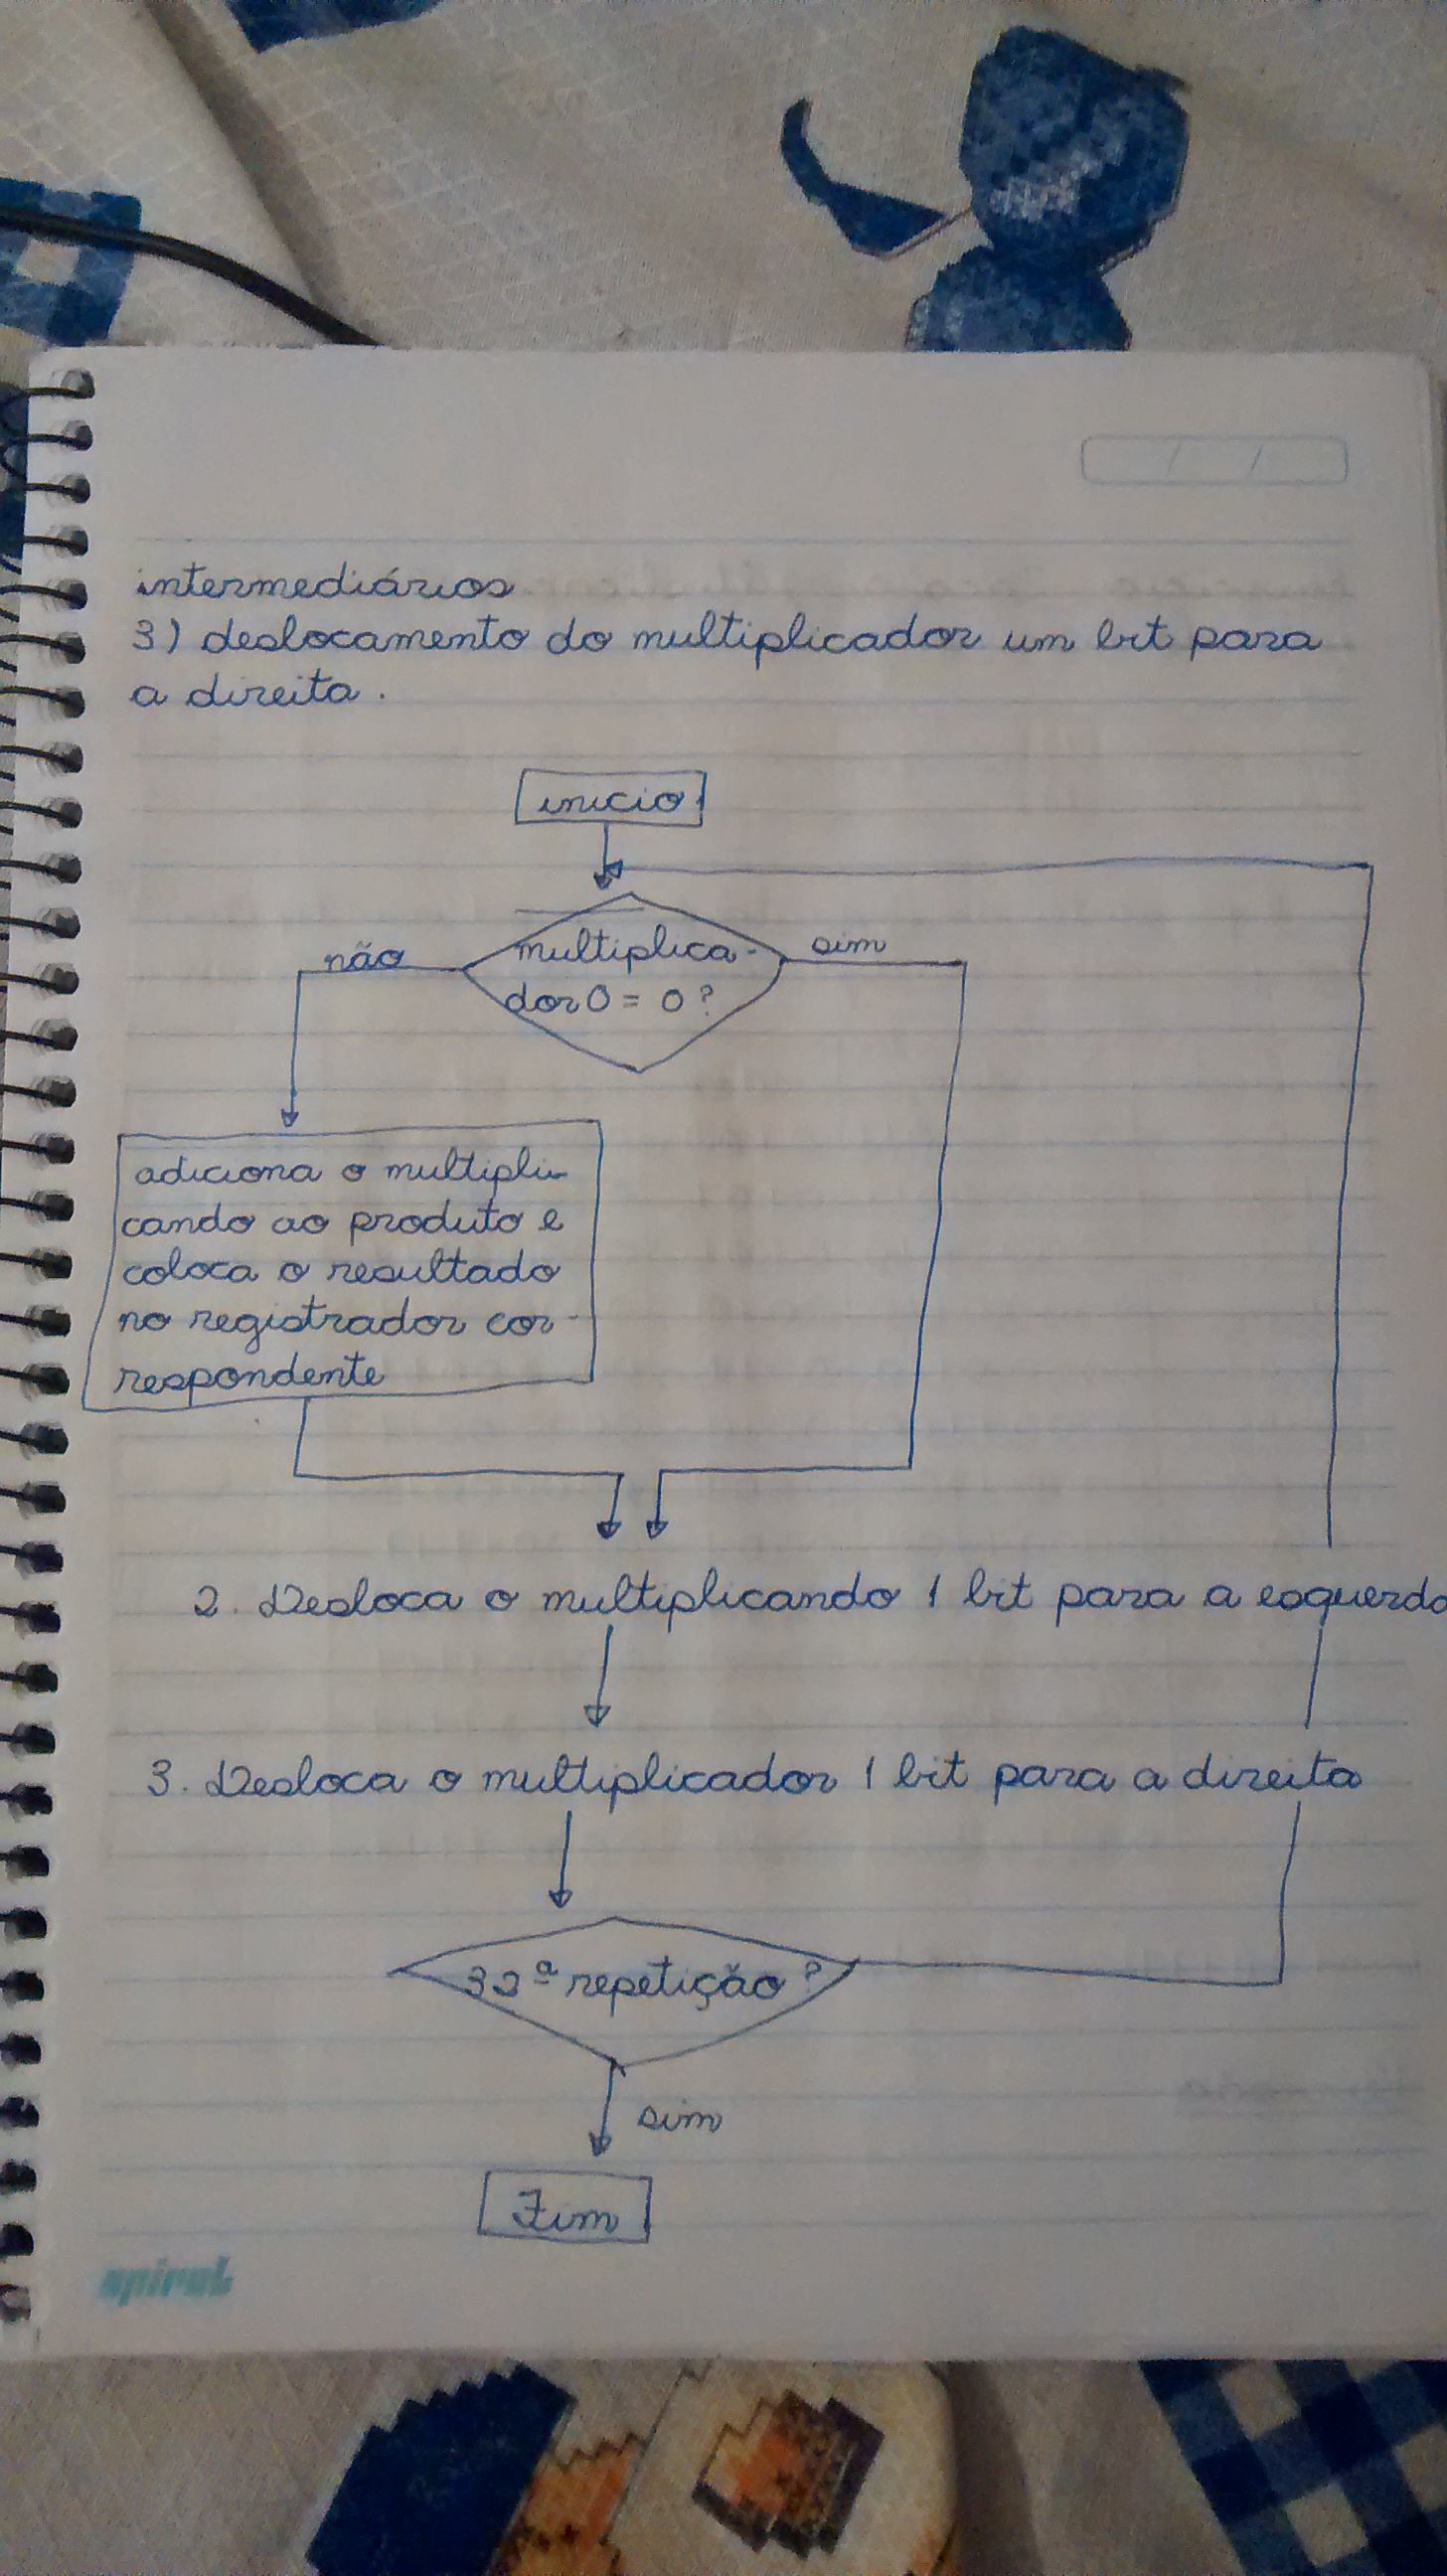 intermediários
3) deslocamento do multiplicador um bit para
a direita.
inicio
não
sim
multiplica-
dor0 = 0?
adiciona o multipli-
cando ao produto e
coloca o resultado
no registrador cor-
respondente
2. Desloca o multiplicando 1 bit para a esquerda
3. Desloca o multiplicador 1 bit para a direita
32ª repetição?
sim
Fim
spiral